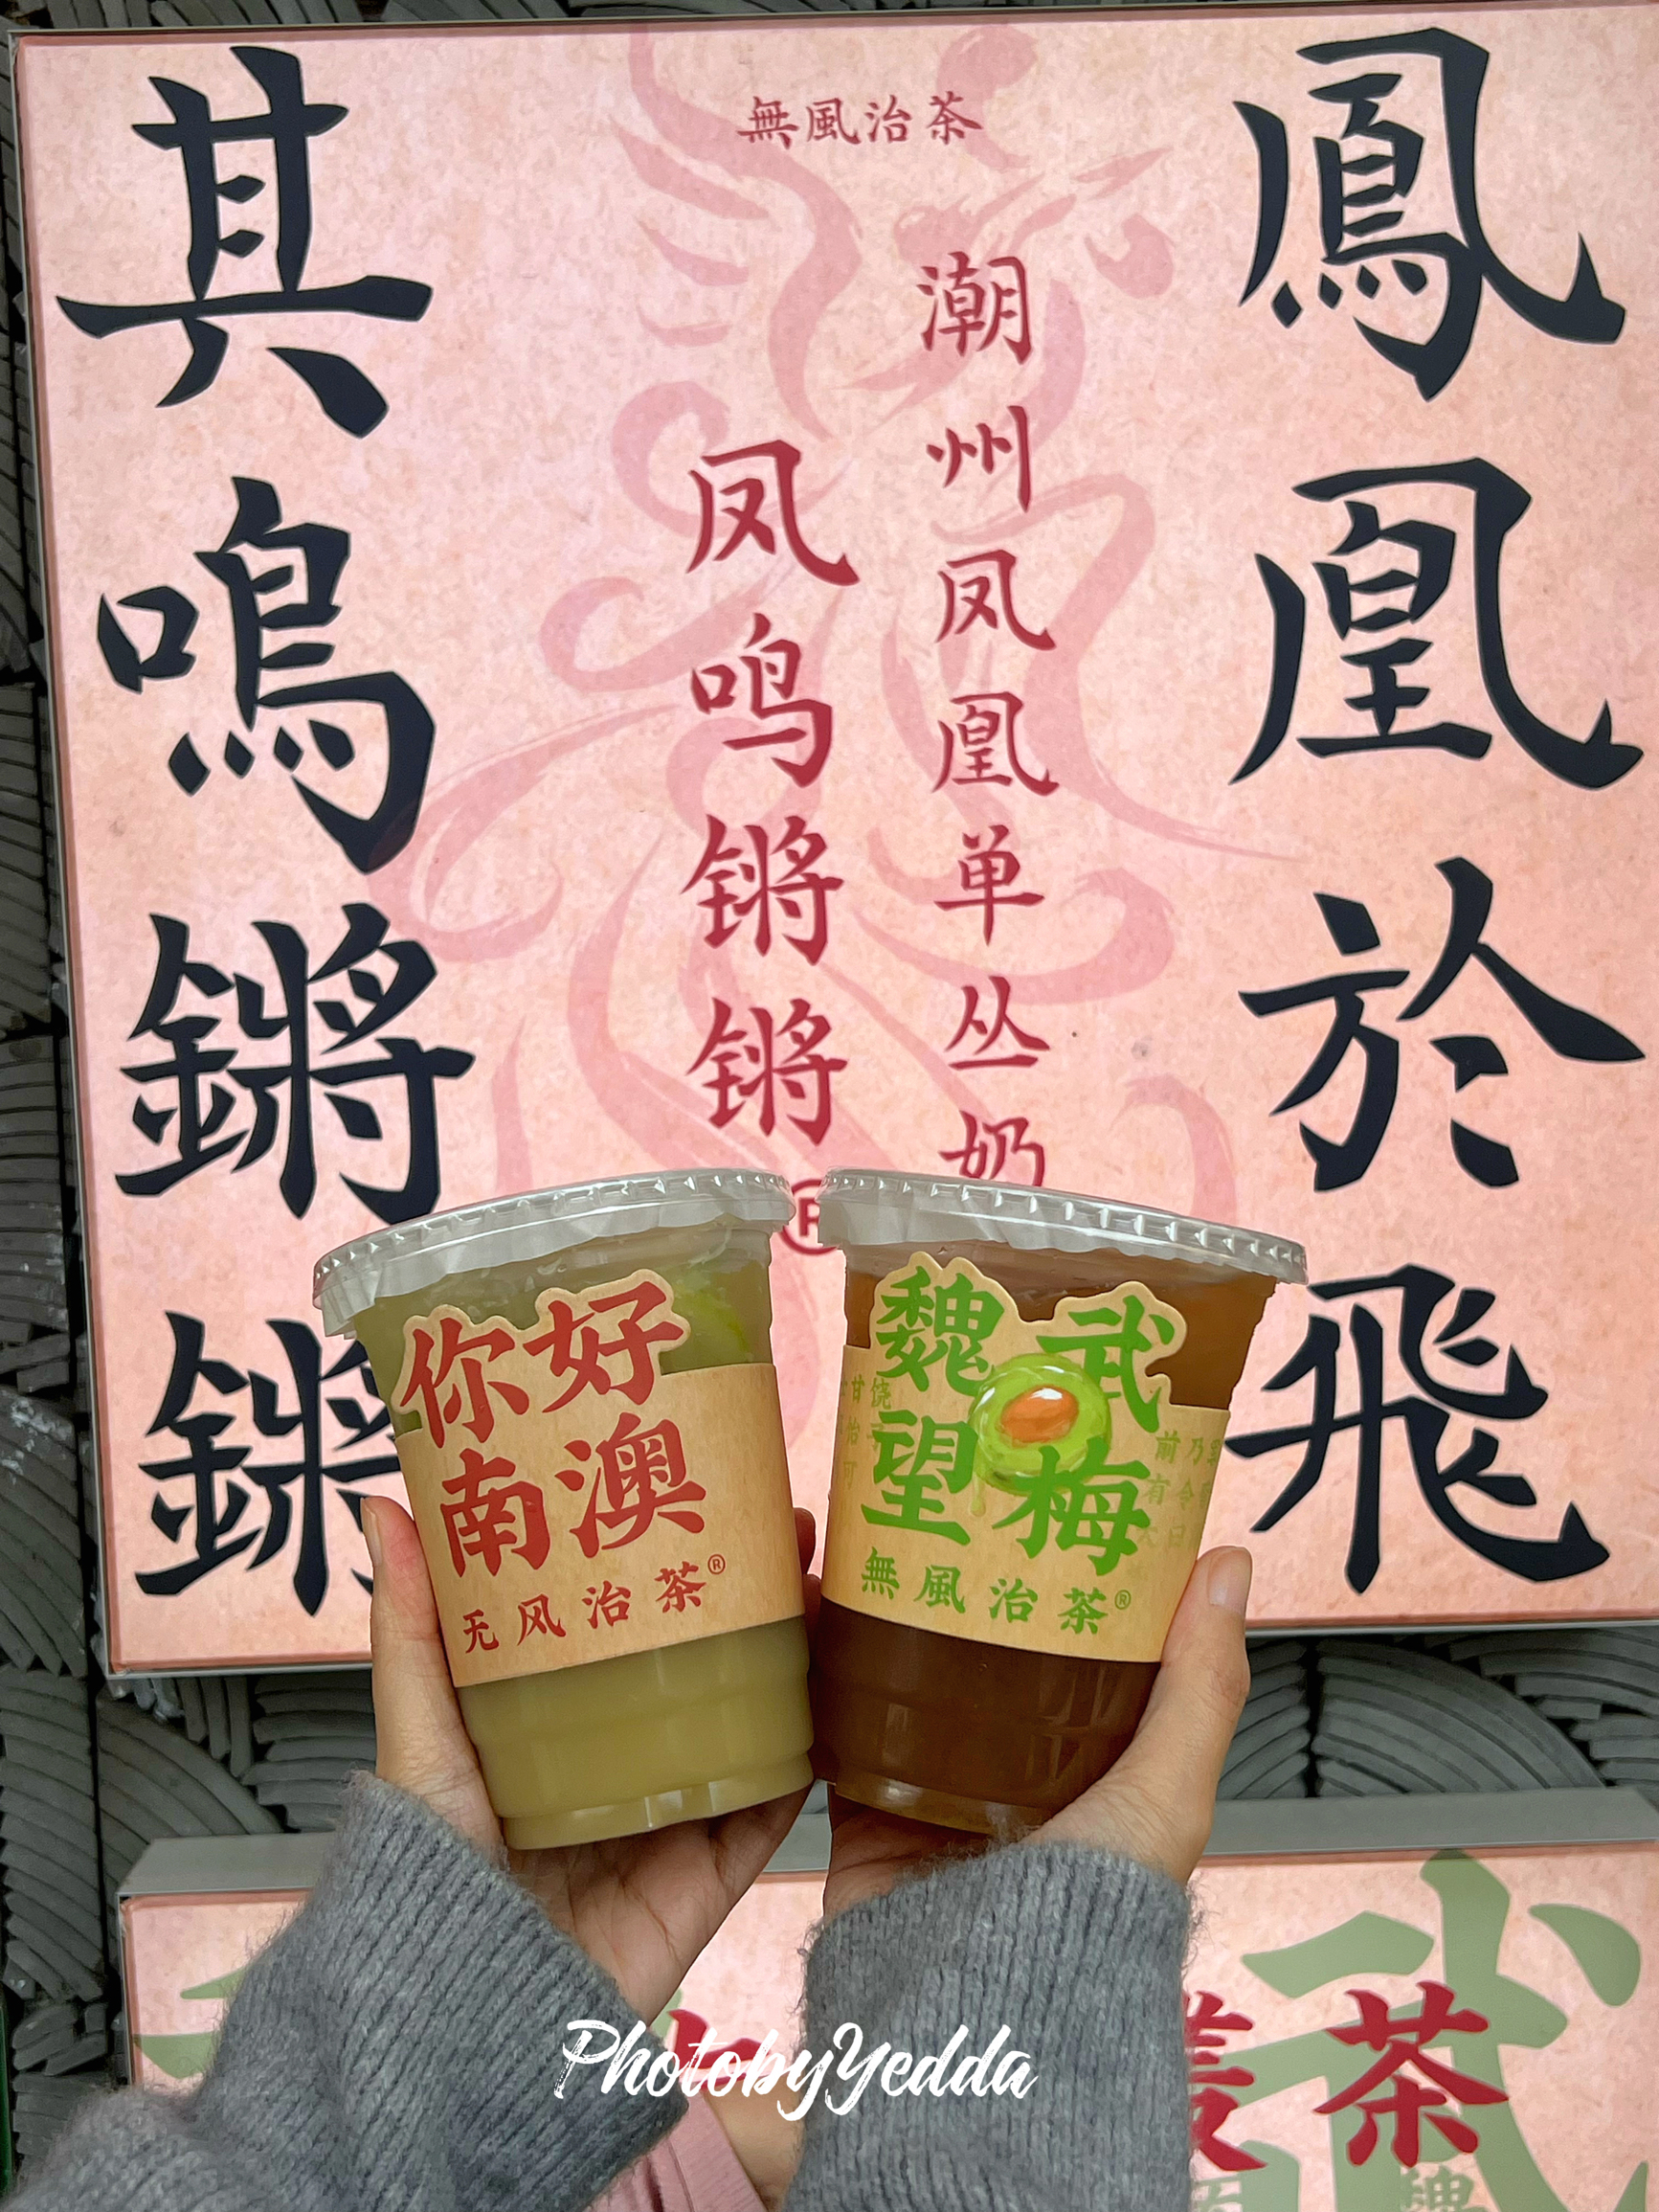 無風治茶
鳳凰於飛
潮州凤凰单丛奶
凤鸣锵锵
其鳴鏘鏘
你好
南澳
无风治茶®
魏武
望梅
無風治茶®
PhotobyYedda
茶